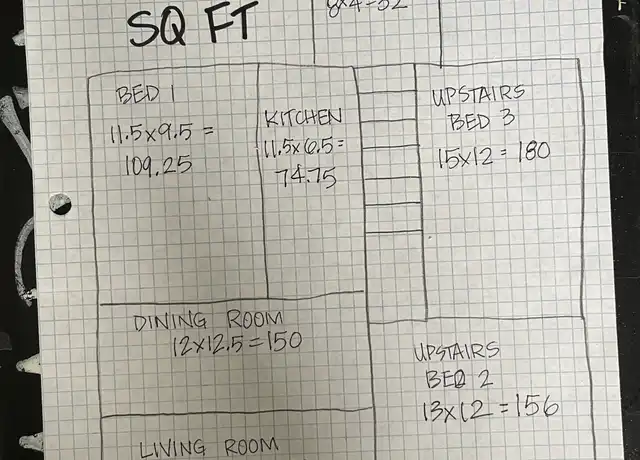 SQ FT
8x4=32
BED 1
11.5x9.5=
109.25
KITCHEN
11.5x6.5=
74.75
UPSTAIRS
BED 3
15x12=180
DINING ROOM
12x12.5=150
UPSTAIRS
BED 2
13x12=156
LIVING ROOM